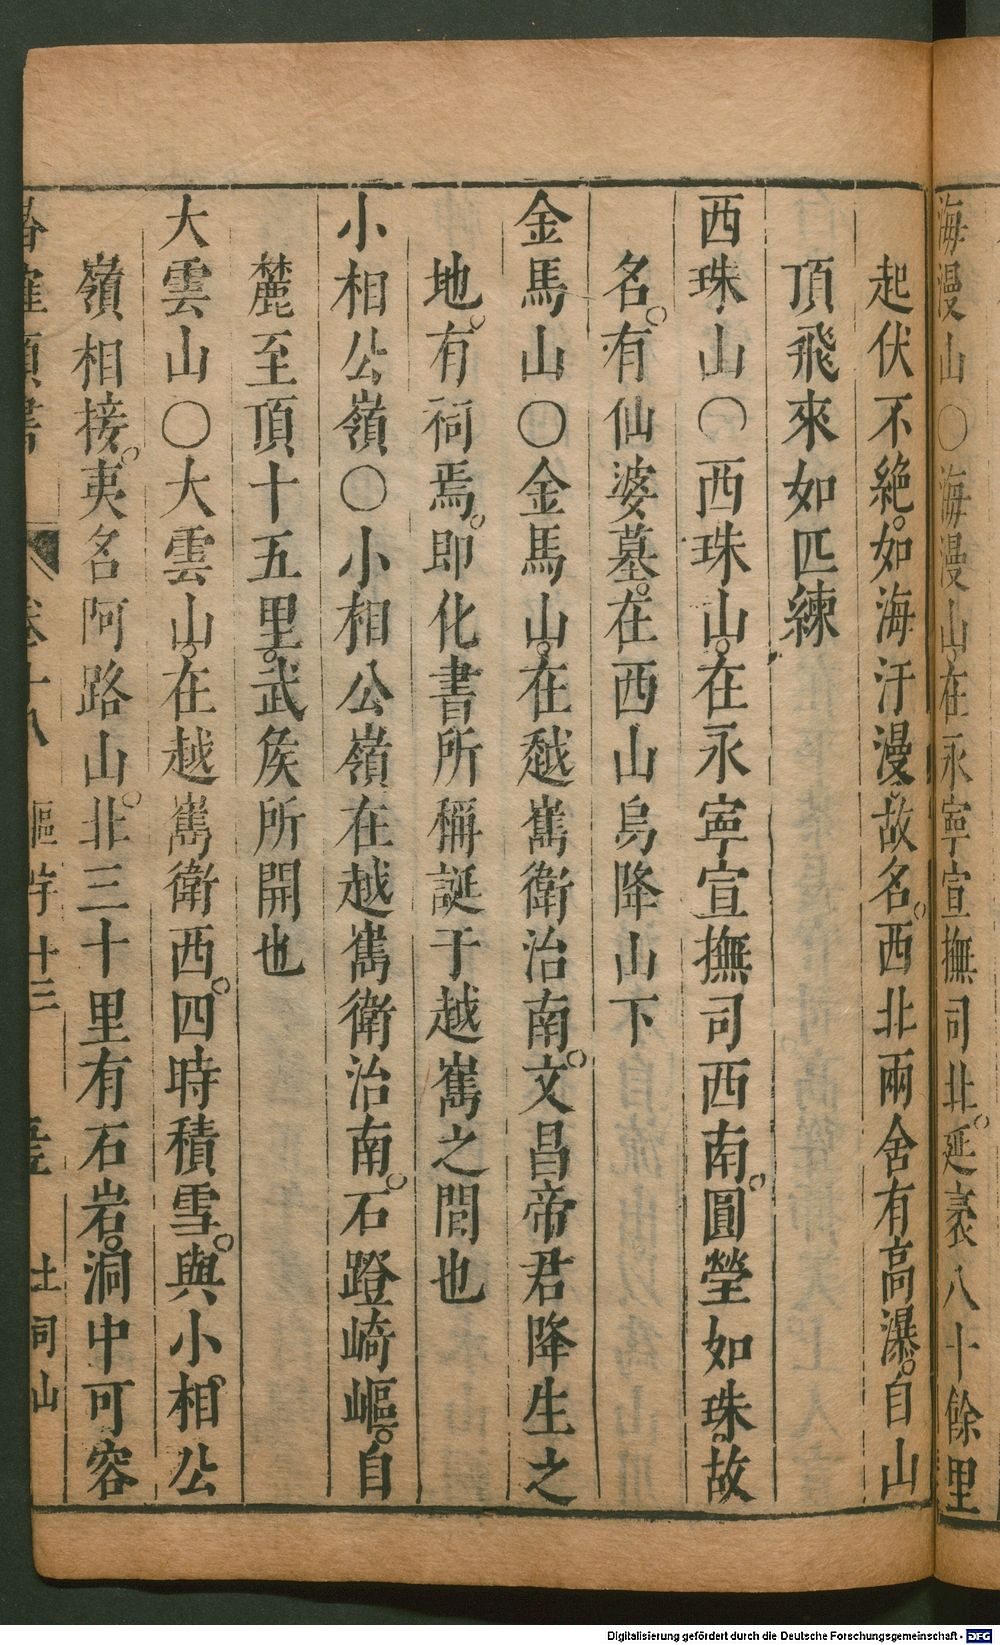 海漫山〇海漫山在永寧宣撫司北。延袤八十餘里
起伏不絶。如海汙漫。故名。西北兩舍有高瀑。自山
頂飛來如匹練
西珠山〇西珠山。在永寧宣撫司西南。圓瑩如珠。故
名。有仙婆墓。在西山烏降山下
金馬山〇金馬山。在越嶲衛治南。文昌帝君降生之
地。有祠焉。即化書所稱誕于越嶲之間也
小相公嶺〇小相公嶺在越嶲衛治南。石蹬崎嶇。自
麓至頂十五里。武矦所開也
大雲山〇大雲山。在越嶲衛西。四時積雪。與小相公
嶺相接。夷名阿路山。北三十里有石岩。洞中可容
卷十八
土司山
Digitalisierung gefördert durch die Deutsche Forschungsgemeinschaft - DFG